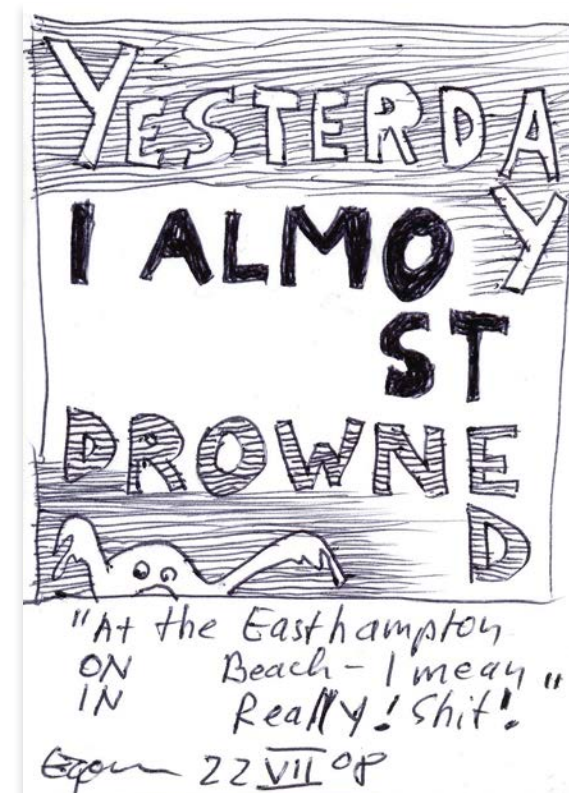 YESTERDA
Y
I ALMO
ST
DROWNE
D
"At the Easthampton
ON Beach - I mean
IN Really! Shit!"
22 VII 08